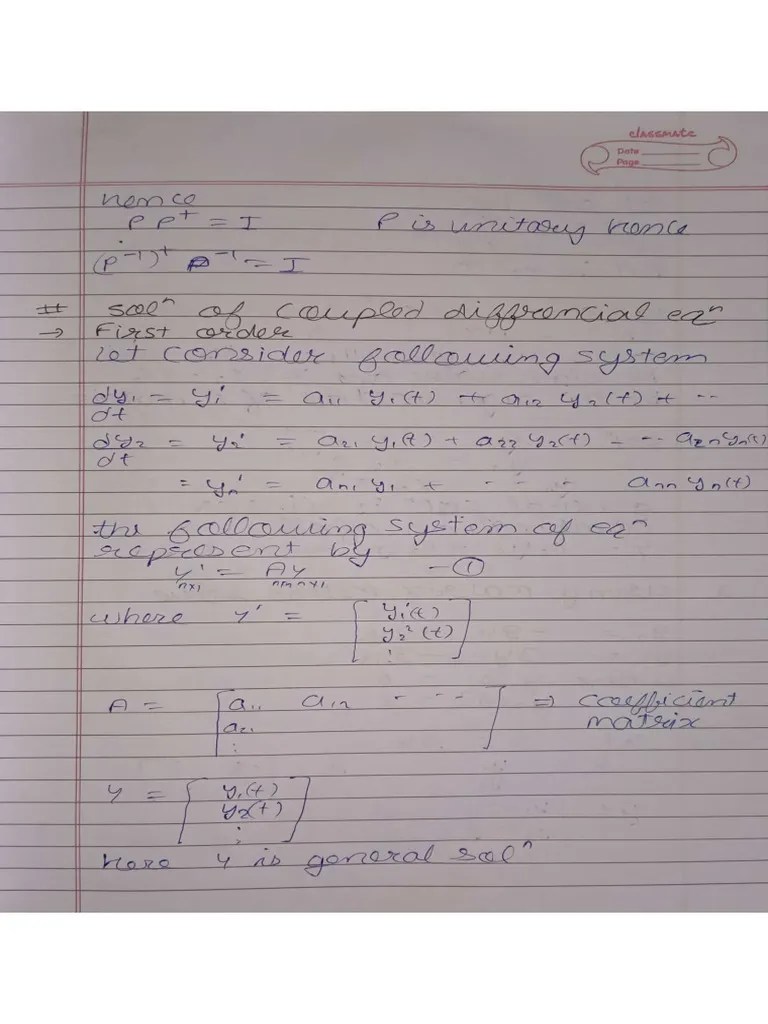 classmate
Date
Page
hence
P P⁺ = I P is unitary hence
(P⁻¹)⁺ P⁻¹ = I
# solⁿ of coupled diffrencial eqⁿ
→ First order
let consider following system
dy₁/dt = y₁' = a₁₁ y₁(t) + a₁₂ y₂(t) + --
dy₂/dt = y₂' = a₂₁ y₁(t) + a₂₂ y₂(t) - -- a₂ₙyₙ(t)
= yₙ' = aₙ₁ y₁ + - - - aₙₙ yₙ(t)
the following system of eqⁿ
represent by
y' = Ay - ①
n×1 n×n n×1
where y' = [ y₁'(t)
y₂²(t)
⋮ ]
A = [ a₁₁ a₁₂ - -- ] ⇒ coefficient
a₂₁ matrix
⋮
y = [ y₁(t)
y₂(t)
⋮ ]
here y is general solⁿ